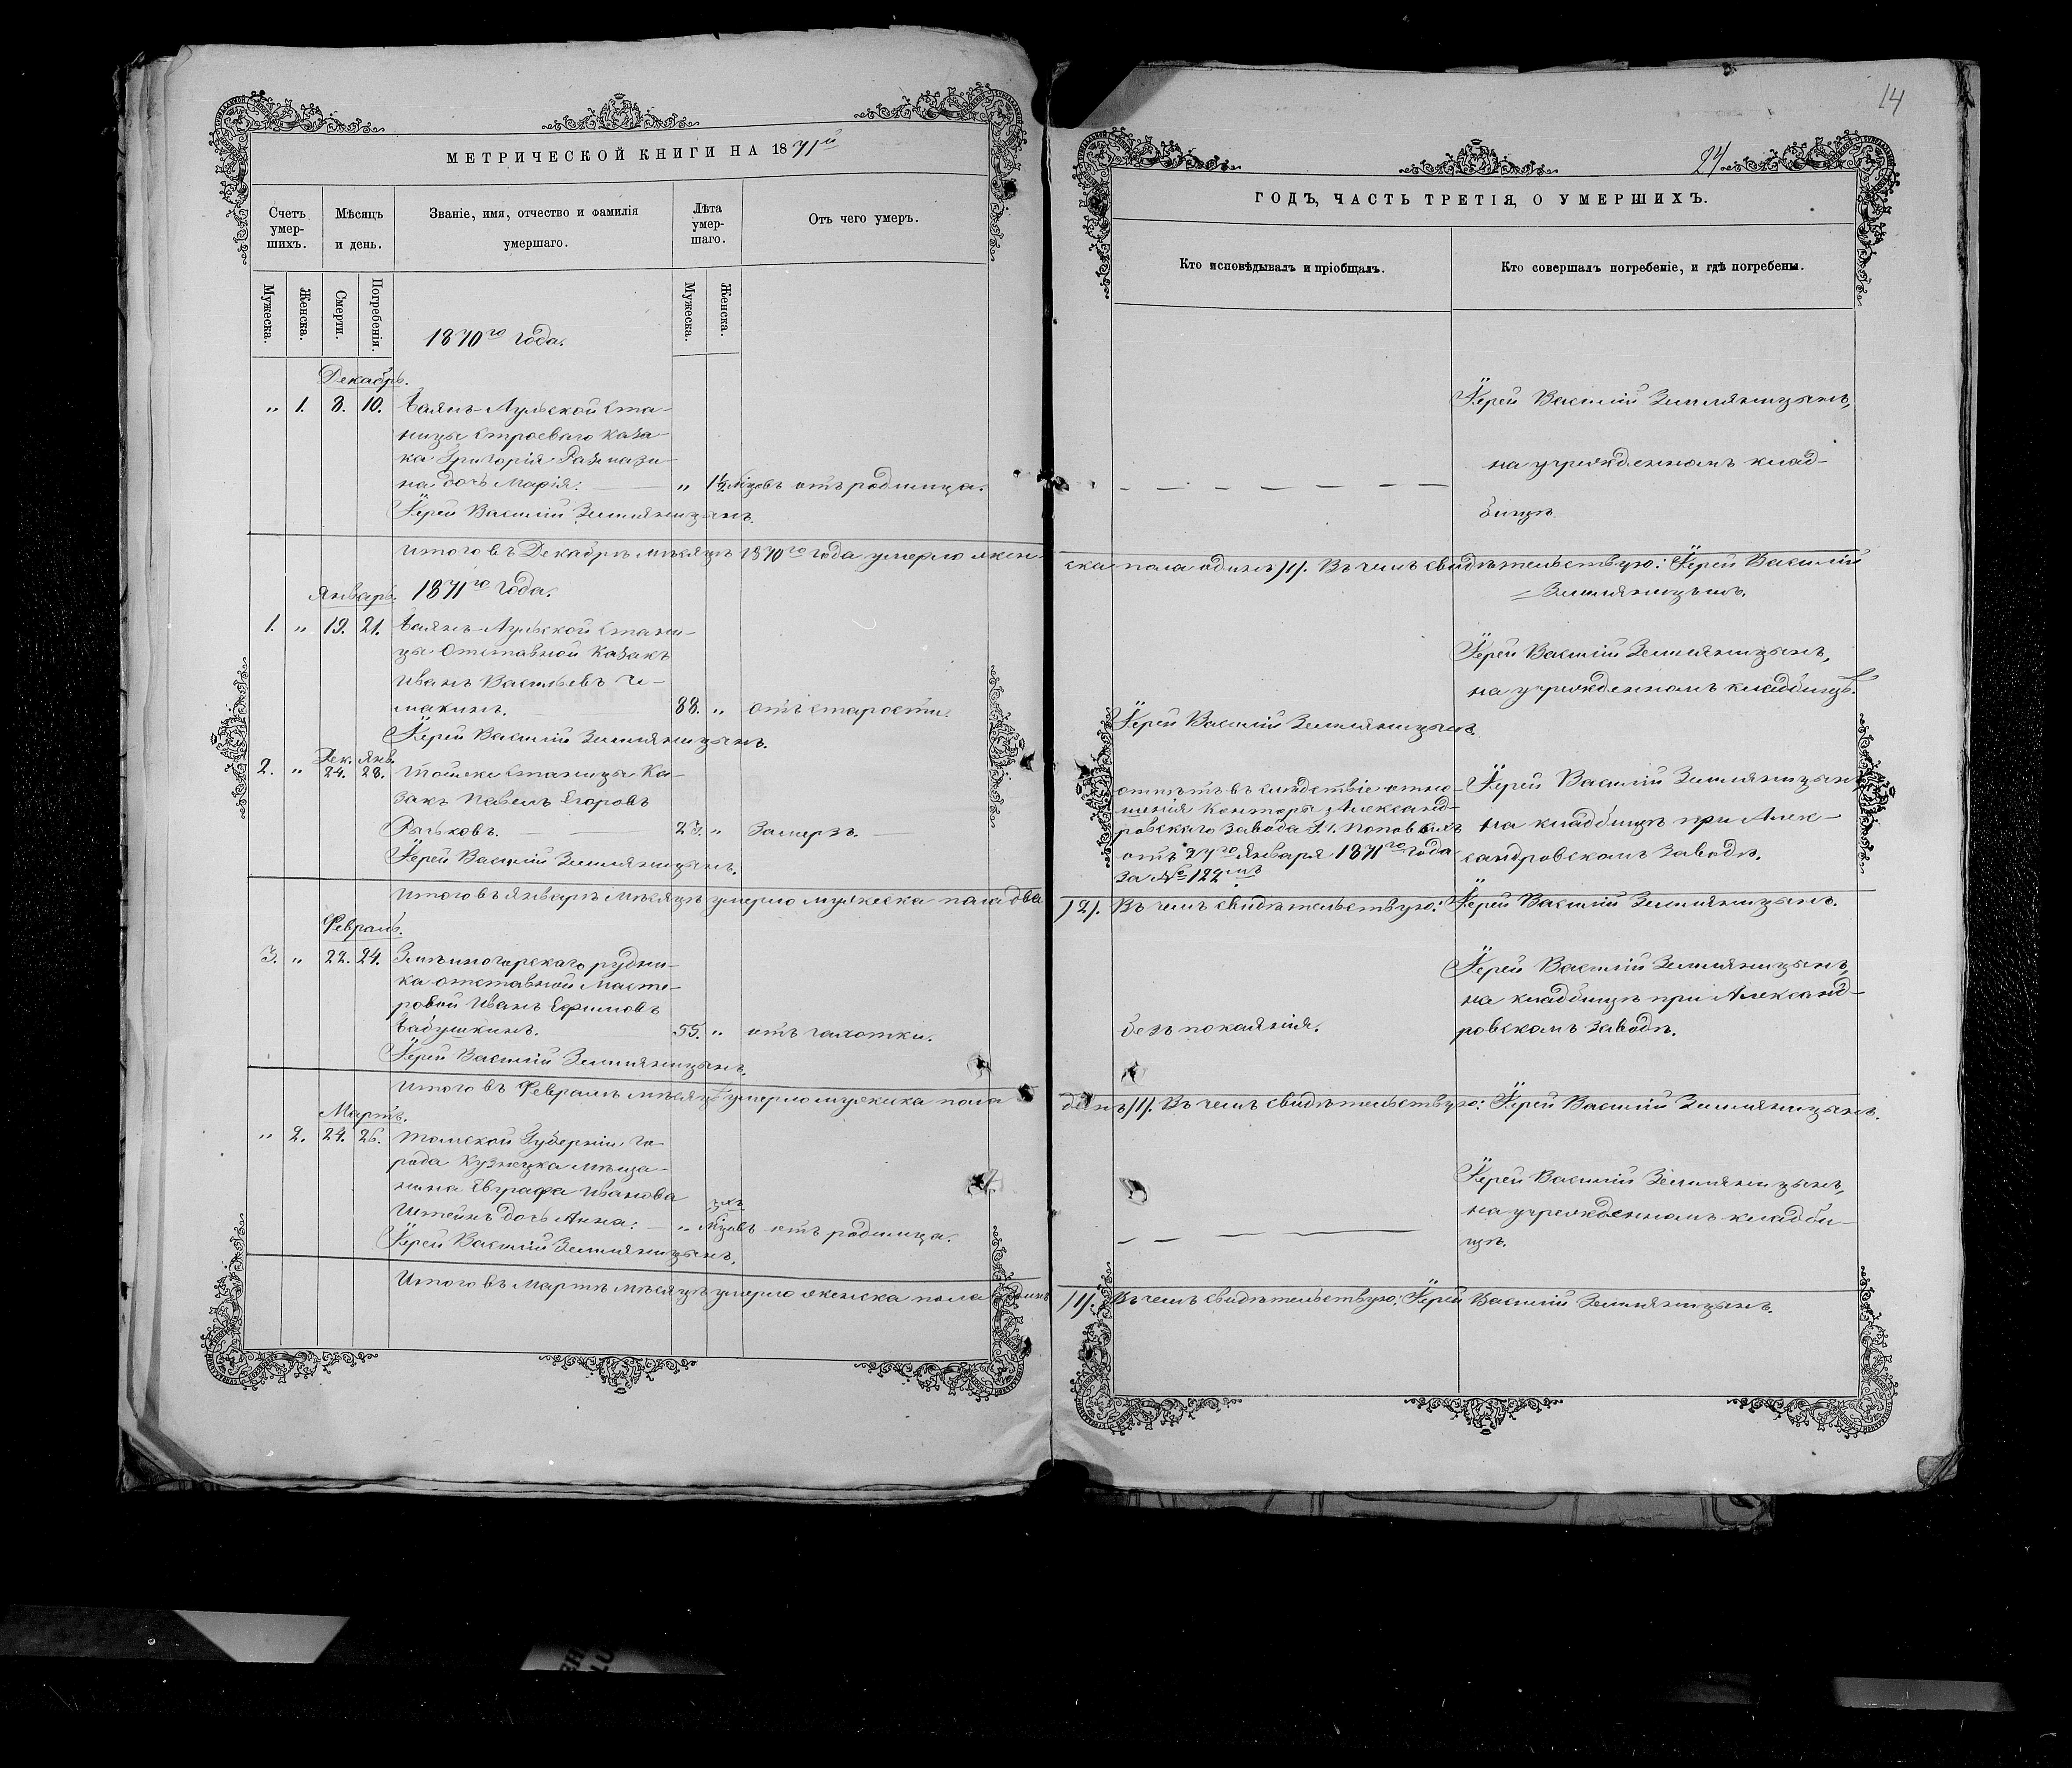 14
МЕТРИЧЕСКОЙ КНИГИ НА 1871й
24
ГОДЪ, ЧАСТЬ ТРЕТІЯ, О УМЕРШИХЪ.
Счетъ умер-шихъ.
Мѣсяцъ и день.
Званіе, имя, отчество и фамилія умершаго.
Лѣта умер-шаго.
Отъ чего умеръ.
Кто исповѣдывалъ и пріобщалъ.
Кто совершалъ погребеніе, и гдѣ погребены.
Мужеска.
Женска.
Смерти.
Погребенія.
Мужеска.
Женска.
1870го года.
Декабрь.
„ 1. 8. 10. Баянъ-Аульской ста-
ницы строеваго каза-
ка Григорія
на дочь Марія: „ мѣсѣцъ отъ родимца.
Іерей Василій Земляницынъ.
Іерей Василій Земляницынъ,
на учрежденномъ клад-
бищѣ
Итого въ Декабрѣ мѣсяцѣ 1870го года умерло жен-
ска пола одинъ /1/. Въ чемъ свидѣтельствую: Іерей Василій
Земляницынъ.
Январь. 1871го года.
1. „ 19. 21. Баянъ-Аульской стани-
цы отставной казакъ
Иванъ Васильевъ Чи-
макинъ. 88. „ отъ старости.
Іерей Василій Земляницынъ.
Іерей Василій Земляницынъ
Іерей Василій Земляницынъ,
на учрежденномъ кладбищѣ.
Дек. Янв.
2. „ 24. 28. станицы Ка-
закъ Павелъ Егоровъ
Рыльковъ. 23. „ Замерзъ.
Іерей Василій Земляницынъ.
отпѣтъ въ слѣдствіе отно-
шенія Конторы Александ-
ровскаго завода Поповыхъ
отъ 27го Января 1871го года
за № 122мъ
Іерей Василій Земляницынъ
на кладбищѣ при Алек-
сандровскомъ заводѣ.
Итого въ Январѣ мѣсяцѣ умерло мужеска пола два
/2/. Въ чемъ свидѣтельствую: Іерей Василій Земляницынъ.
Февраль.
3. „ 22. 24. Змѣиногорскаго рудни-
ка отставной масте-
ровой Иванъ Ефимовъ
Бабушкинъ. 55. „ отъ чахотки.
Іерей Василій Земляницынъ.
безъ покаянія.
Іерей Василій Земляницынъ,
на кладбищѣ при Александ-
ровскомъ заводѣ.
Итого въ Февралѣ мѣсяцѣ умерло мужеска пола
динъ /1/. Въ чемъ свидѣтельствую: Іерей Василій Земляницынъ.
Мартъ.
„ 2. 24. 26. Томской Губерніи, го-
рода Кузнецка мѣща-
нина Евграфа Иванова
Штейнъ дочь Анна: „ мѣсѣцъ отъ родимца.
Іерей Василій Земляницынъ.
Іерей Василій Земляницынъ,
на учрежденномъ кладби-
щѣ.
Итого въ Мартѣ мѣсяцѣ умерло женска пола одинъ
/1/. Въ чемъ свидѣтельствую: Іерей Василій Земляницынъ.